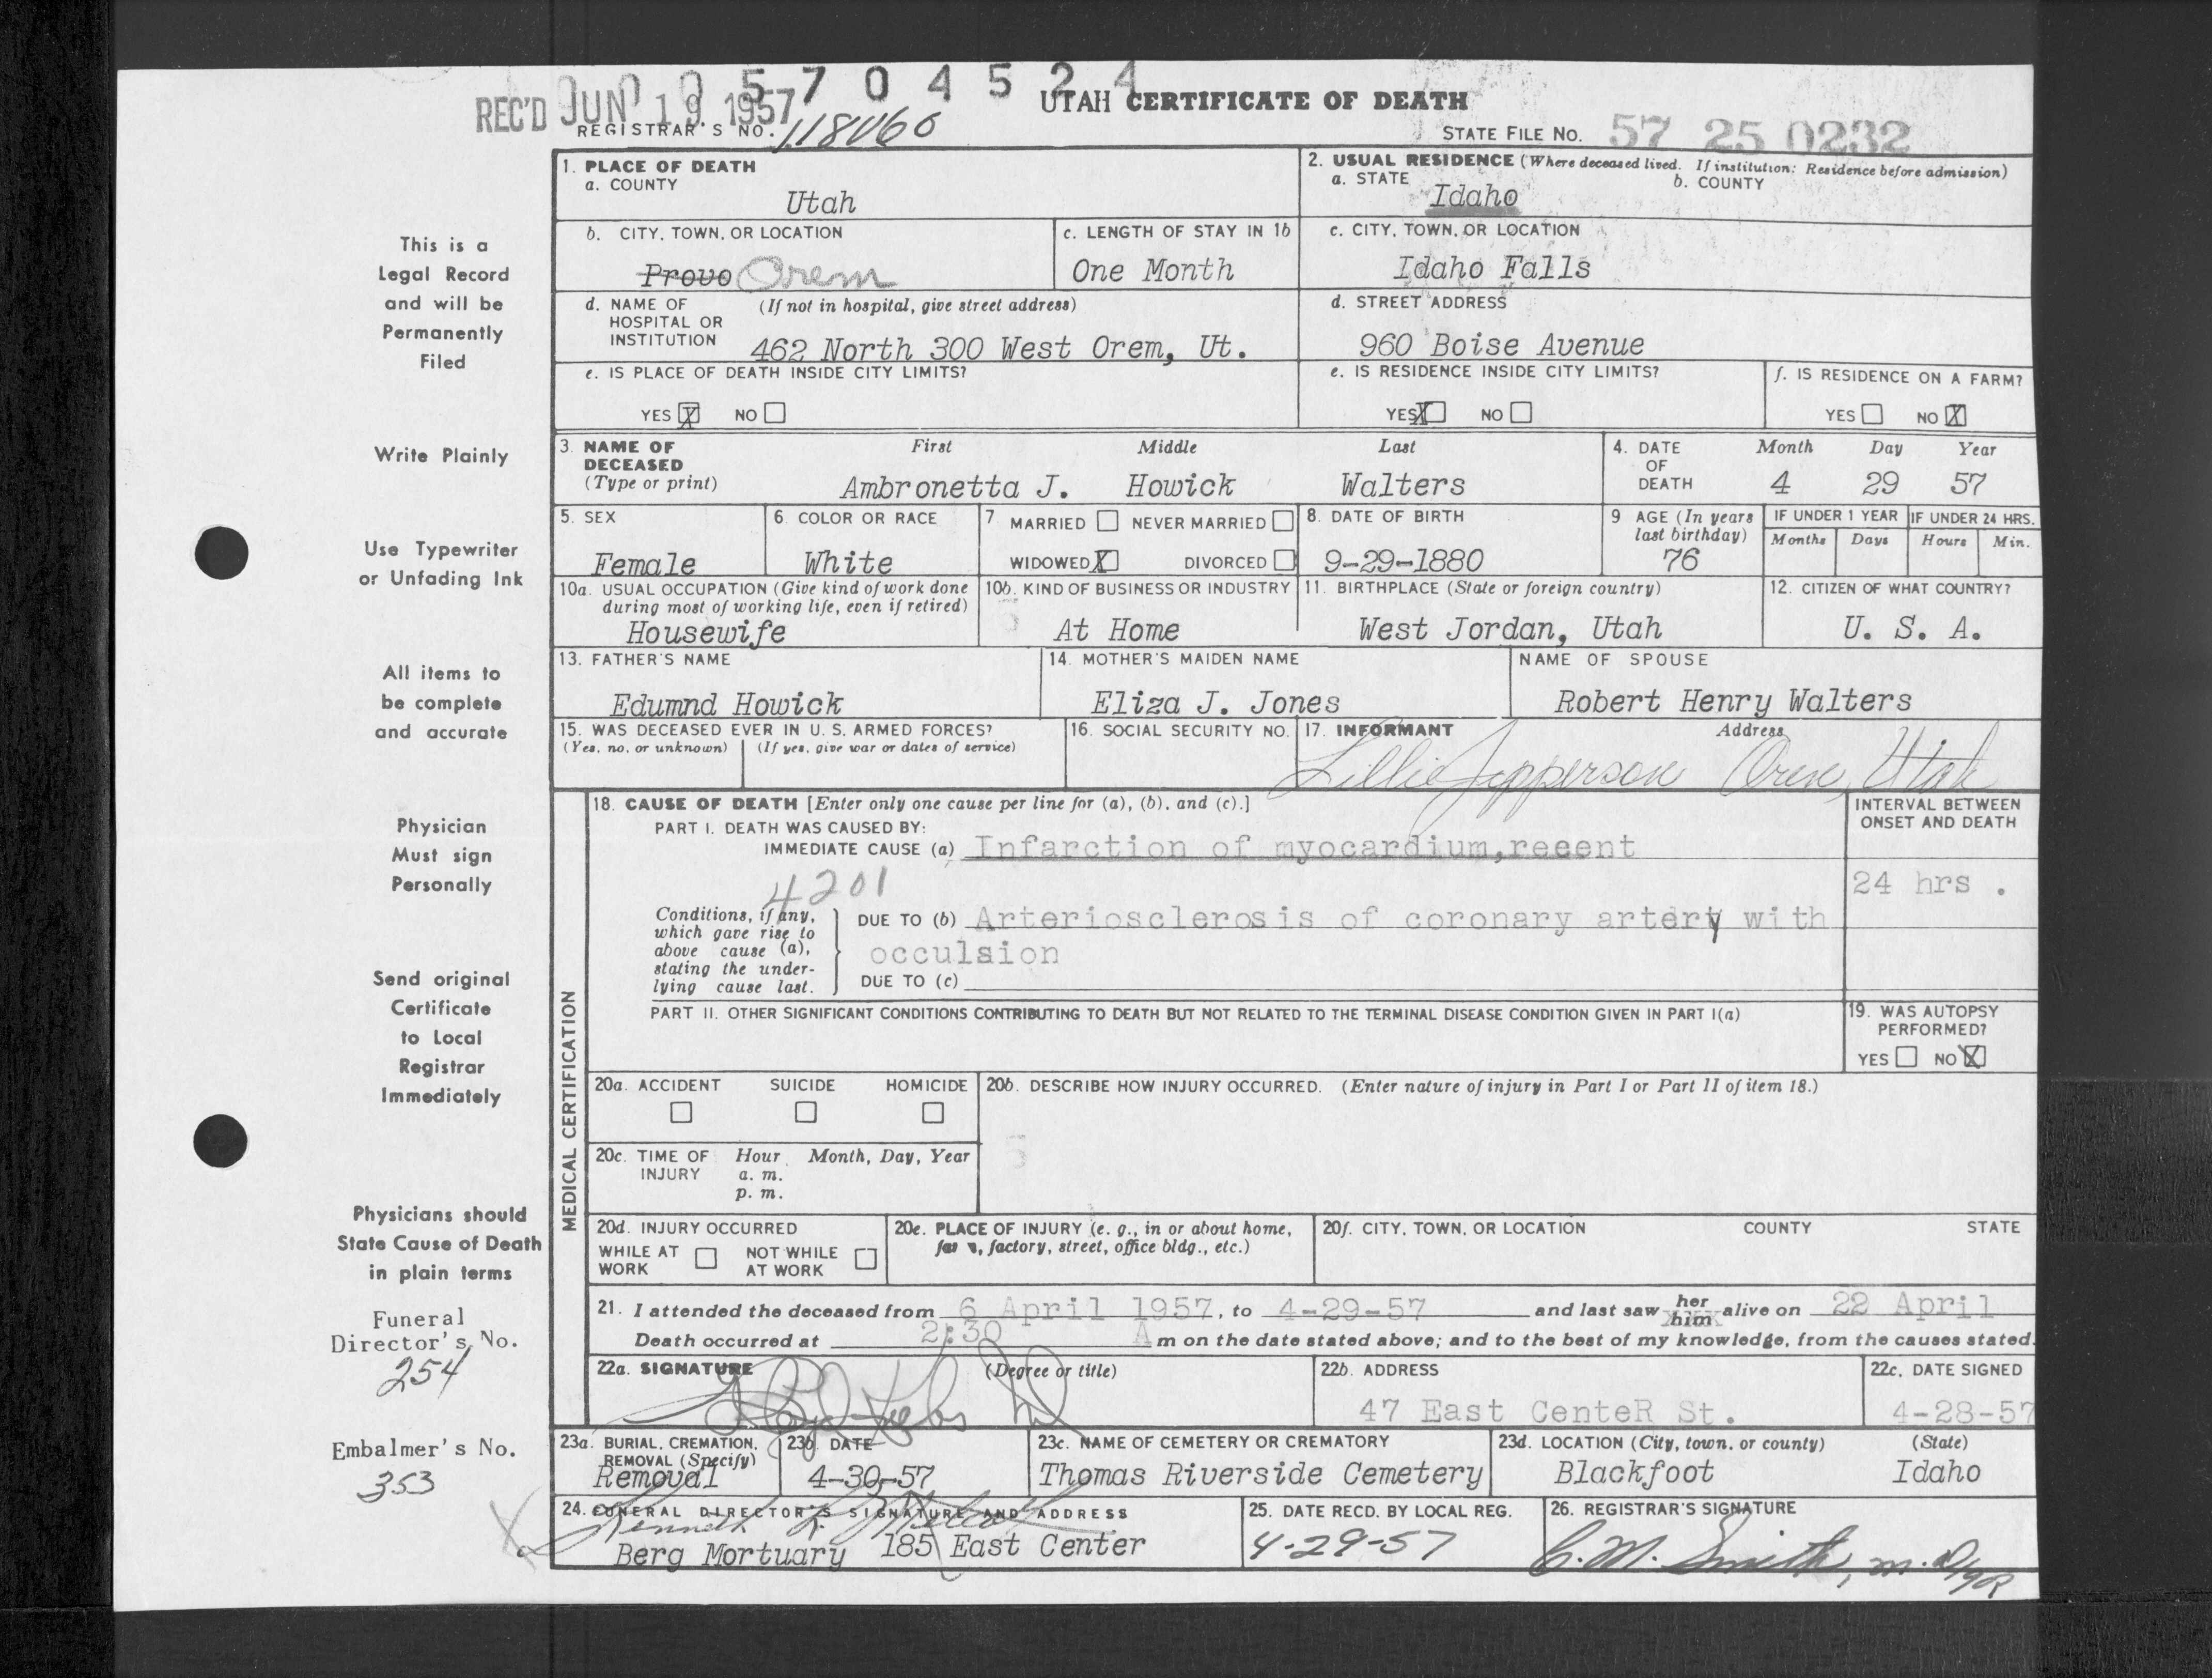 0 0 0 5 7 0 4 5 2 4
REC'D JUN 19 1957
UTAH CERTIFICATE OF DEATH
REGISTRAR'S NO. 118V60
STATE FILE NO. 57 25 0232
1. PLACE OF DEATH
a. COUNTY
Utah
2. USUAL RESIDENCE (Where deceased lived. If institution: Residence before admission)
a. STATE
b. COUNTY
Idaho
b. CITY, TOWN, OR LOCATION
Provo Orem
c. LENGTH OF STAY IN 1b
One Month
c. CITY, TOWN, OR LOCATION
Idaho Falls
d. NAME OF (If not in hospital, give street address)
HOSPITAL OR
INSTITUTION
462 North 300 West Orem, Ut.
d. STREET ADDRESS
960 Boise Avenue
e. IS PLACE OF DEATH INSIDE CITY LIMITS?
YES X NO
e. IS RESIDENCE INSIDE CITY LIMITS?
YES X NO
f. IS RESIDENCE ON A FARM?
YES NO X
3. NAME OF
DECEASED
(Type or print)
First Middle Last
Ambronetta J. Howick Walters
4. DATE
OF
DEATH
Month Day Year
4 29 57
5. SEX
Female
6. COLOR OR RACE
White
7 MARRIED NEVER MARRIED
WIDOWED X DIVORCED
8. DATE OF BIRTH
9-29-1880
9 AGE (In years
last birthday)
76
IF UNDER 1 YEAR IF UNDER 24 HRS.
Months Days Hours Min.
10a. USUAL OCCUPATION (Give kind of work done
during most of working life, even if retired)
Housewife
10b. KIND OF BUSINESS OR INDUSTRY
At Home
11. BIRTHPLACE (State or foreign country)
West Jordan, Utah
12. CITIZEN OF WHAT COUNTRY?
U. S. A.
13. FATHER'S NAME
Edumnd Howick
14. MOTHER'S MAIDEN NAME
Eliza J. Jones
NAME OF SPOUSE
Robert Henry Walters
15. WAS DECEASED EVER IN U. S. ARMED FORCES?
(Yes, no, or unknown) (If yes, give war or dates of service)
16. SOCIAL SECURITY NO.
17. INFORMANT Address
Lillie Jepperson Orem, Utah
MEDICAL CERTIFICATION
18. CAUSE OF DEATH [Enter only one cause per line for (a), (b), and (c).]
PART I. DEATH WAS CAUSED BY:
IMMEDIATE CAUSE (a) Infarction of myocardium,recent
INTERVAL BETWEEN
ONSET AND DEATH
24 hrs .
4201
Conditions, if any,
which gave rise to
above cause (a),
stating the under-
lying cause last.
DUE TO (b) Arteriosclerosis of coronary artery with
occulsion
DUE TO (c)
PART II. OTHER SIGNIFICANT CONDITIONS CONTRIBUTING TO DEATH BUT NOT RELATED TO THE TERMINAL DISEASE CONDITION GIVEN IN PART I(a)
19. WAS AUTOPSY
PERFORMED?
YES NO X
20a. ACCIDENT SUICIDE HOMICIDE
20b. DESCRIBE HOW INJURY OCCURRED. (Enter nature of injury in Part I or Part II of item 18.)
20c. TIME OF Hour Month, Day, Year
INJURY a. m.
p. m.
20d. INJURY OCCURRED
WHILE AT NOT WHILE
WORK AT WORK
20e. PLACE OF INJURY (e. g., in or about home,
factory, street, office bldg., etc.)
20f. CITY, TOWN, OR LOCATION COUNTY STATE
21. I attended the deceased from 6 April 1957, to 4-29-57 and last saw her him alive on 22 April
Death occurred at 2:30 A m on the date stated above; and to the best of my knowledge, from the causes stated.
22a. SIGNATURE (Degree or title)
22b. ADDRESS
47 East CenteR St.
22c. DATE SIGNED
4-28-57
23a. BURIAL, CREMATION,
REMOVAL (Specify)
Removal
23b. DATE
4-30-57
23c. NAME OF CEMETERY OR CREMATORY
Thomas Riverside Cemetery
23d. LOCATION (City, town, or county) (State)
Blackfoot Idaho
24. FUNERAL DIRECTOR'S SIGNATURE AND ADDRESS
Berg Mortuary 185 East Center
25. DATE RECD. BY LOCAL REG.
4-29-57
26. REGISTRAR'S SIGNATURE
C. M. Smith, m. D.
This is a
Legal Record
and will be
Permanently
Filed
Write Plainly
Use Typewriter
or Unfading Ink
All items to
be complete
and accurate
Physician
Must sign
Personally
Send original
Certificate
to Local
Registrar
Immediately
Physicians should
State Cause of Death
in plain terms
Funeral
Director's No.
254
Embalmer's No.
353